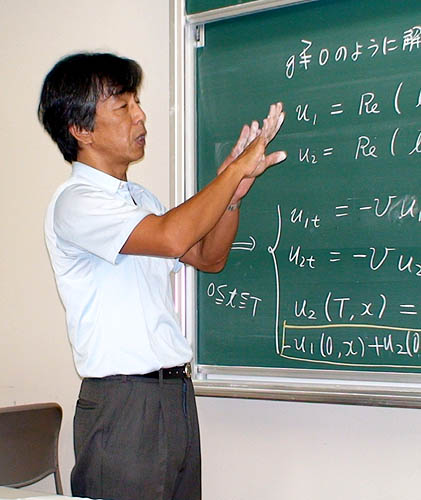 g≢0のように解
u₁ = Re (
u₂ = Re (
u₁ₜ = -νu₁
⇒ u₂ₜ = -νu₂
0≦t≦T
u₂(T,x) =
-u₁(0,x)+u₂(0